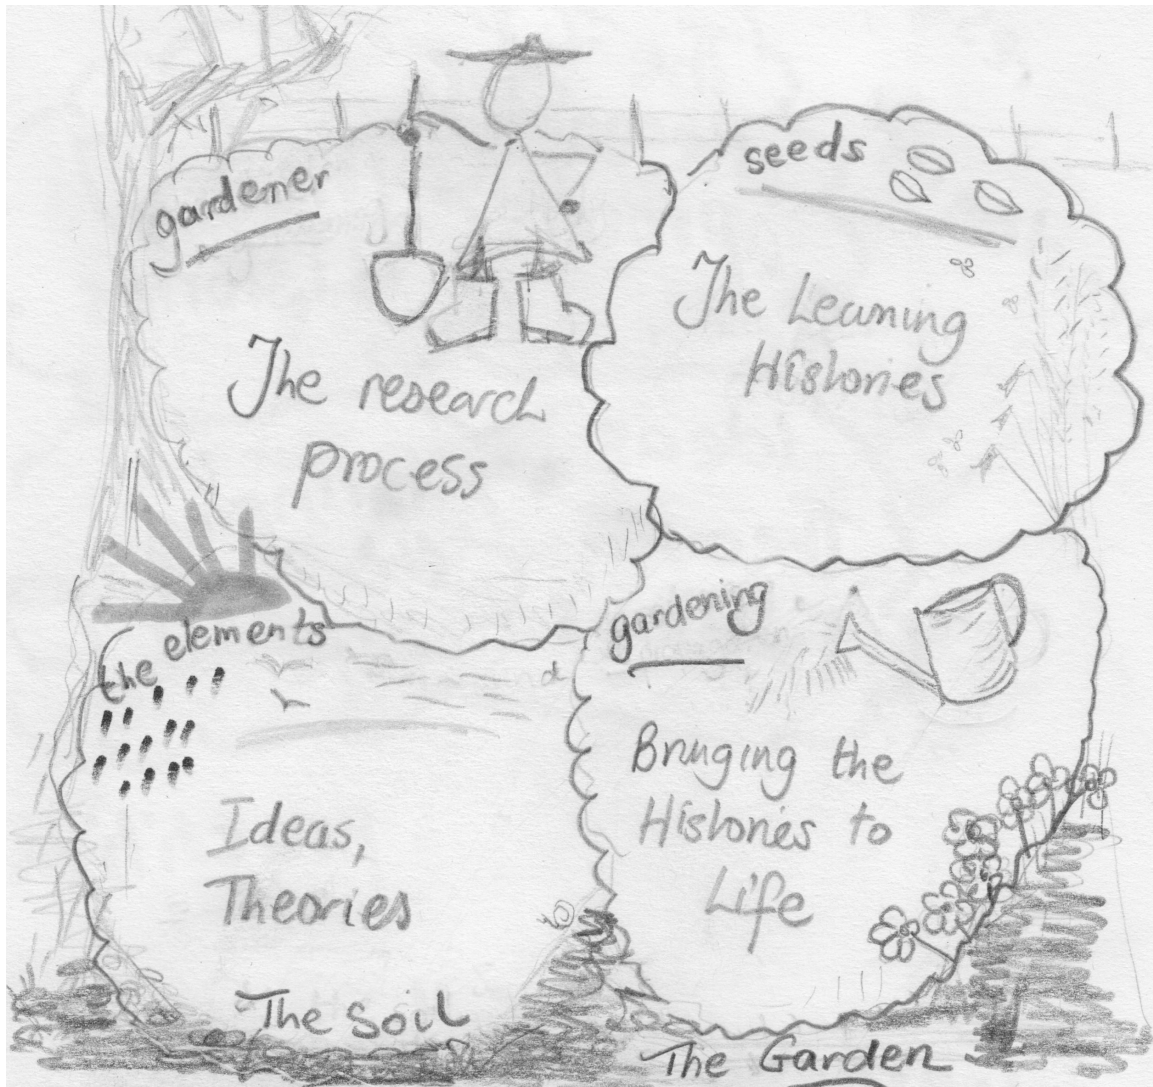 gardener
The research
process
seeds
The Learning
Histories
the elements
Ideas,
Theories
The soil
gardening
Bringing the
Histories to
Life
The Garden